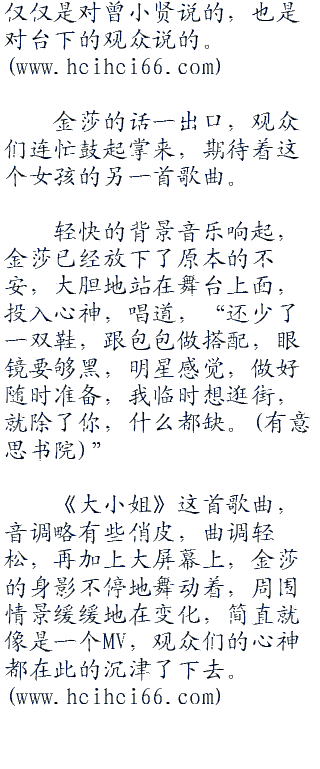 仅仅是对曾小贤说的，也是
对台下的观众说的。
(www.hcihci66.com)
金莎的话一出口，观众
们连忙鼓起掌来，期待着这
个女孩的另一首歌曲。
轻快的背景音乐响起，
金莎已经放下了原本的不
安，大胆地站在舞台上面，
投入心神，唱道，“还少了
一双鞋，跟包包做搭配，眼
镜要够黑，明星感觉，做好
随时准备，我临时想逛街，
就除了你，什么都缺。(有意
思书院)”
《大小姐》这首歌曲，
音调略有些俏皮，曲调轻
松，再加上大屏幕上，金莎
的身影不停地舞动着，周围
情景缓缓地在变化，简直就
像是一个MV，观众们的心神
都在此的沉津了下去。
(www.hcihci66.com)